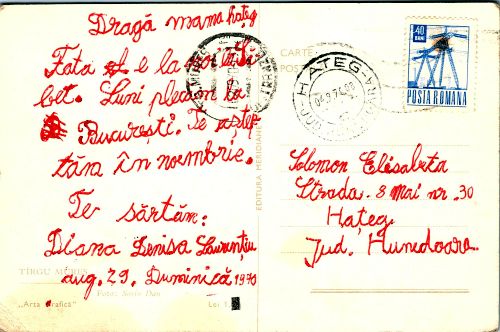 Dragă mama hațeg
Fata e la
bet. Luni plecăm la
București. Te aștep
tăm în noembrie.
Te sărtăm:
Diana Denisa Laurențiu
aug. 29. Duminică 1970
TÎRGU MUREȘ
Foto: Sorin Dan
„Arta Grafică”
Lei 1
EDITURA MERIDIANE
CARTE
POȘT
HAȚEG
40
BANI
POSTA ROMANA
Solomon Elisabeta
Strada 8 Mai nr. 30
Hațeg
Jud. Hunedoara